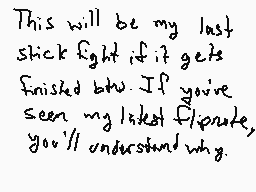 This will be my last
stick fight if it gets
finished btw. If you've
seen my latest flipnote,
you'll understand why.